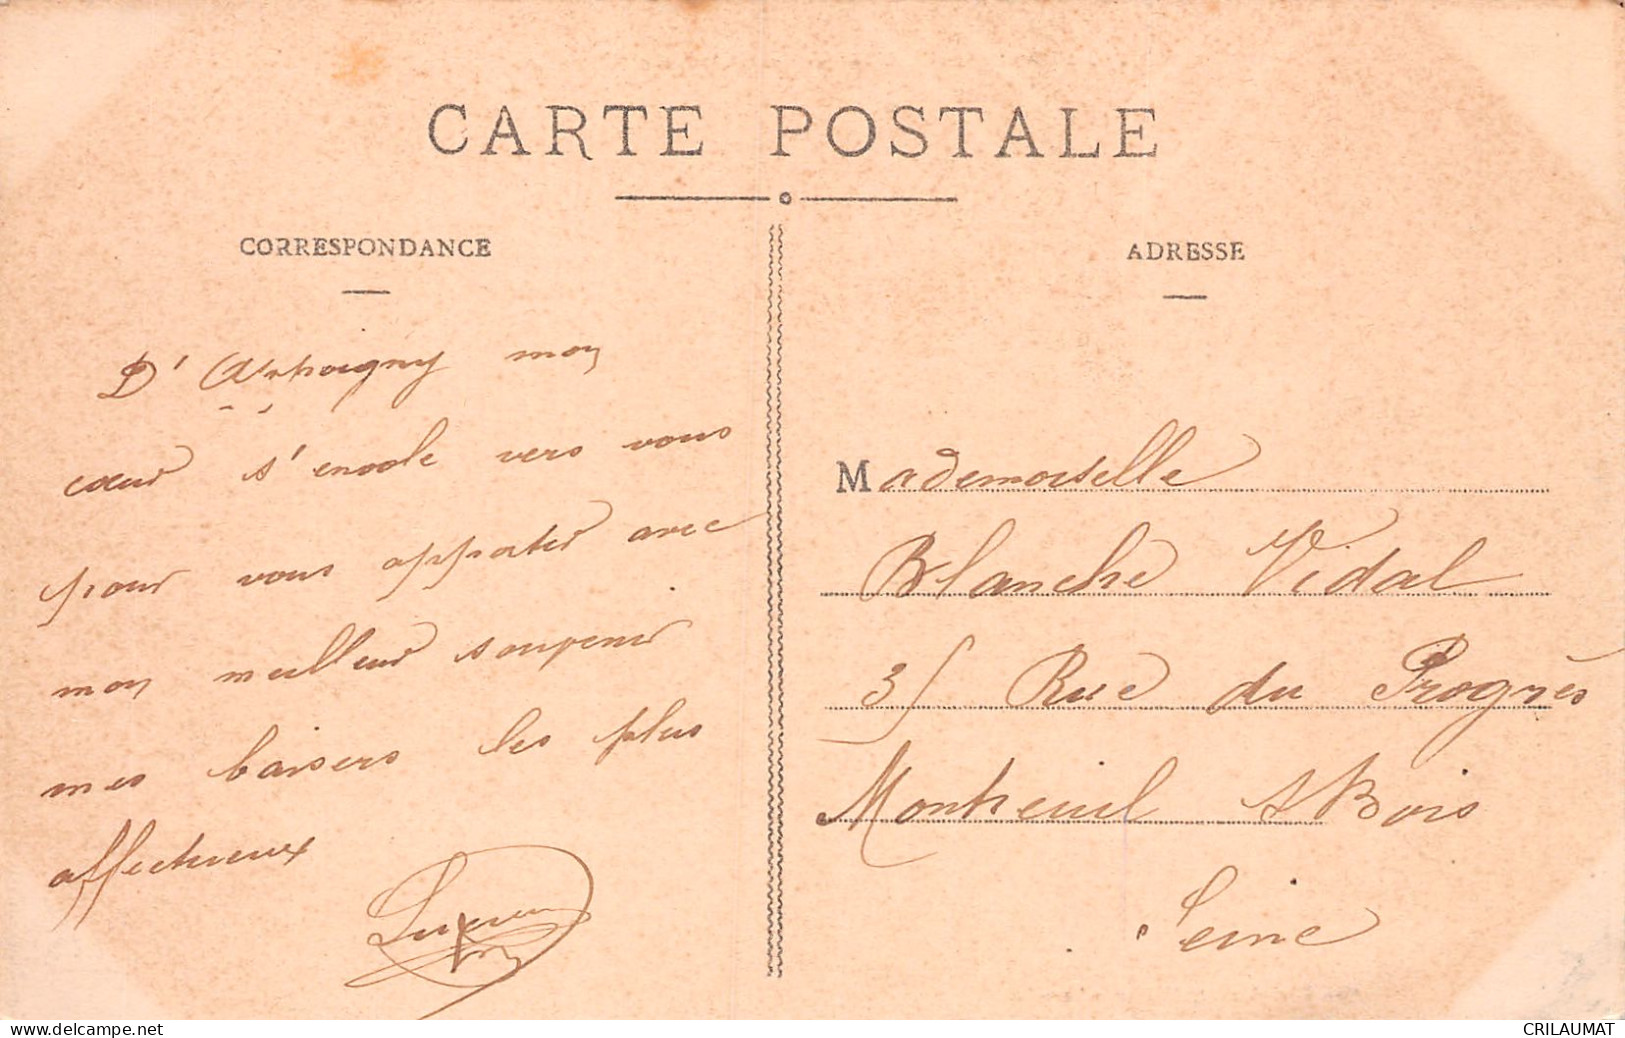 CARTE POSTALE
CORRESPONDANCE
ADRESSE
D' Appoigny mon
cœur s'envole vers vous
pour vous apporter avec
mon meilleur souvenir
mes baisers les plus
affectueux
Mademoiselle
Blanche Vidal
35 Rue du Progrès
Montreuil s Bois
Seine
www.delcampe.net
CRILAUMAT